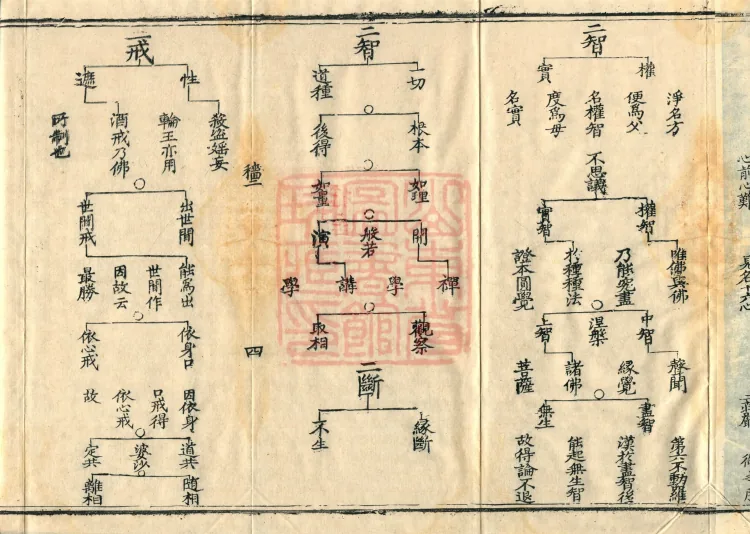 二智
權
實
淨名方
便為父
名權智
度為母
名實
不思議
權智
實智
唯佛與佛
乃能究盡
於種種法
證本圓覺
涅槃
中智
上智
聲聞
緣覺
諸佛
菩薩
盡智
無生
第六不動羅
漢於盡智後
能起無生智
故得論不退
二智
一切
道種
根本
後得
如理
如量
般若
開
演
禪
學
講
學
觀察
取相
二斷
緣斷
不生
四
二戒
性
遮
殺盜婬妄
輪王亦用
酒戒乃佛
所制也
出世間
世間戒
能為出
世間作
因故云
最勝
依身口
依心戒
因依身
口戒得
依心戒
故
婆沙
道共
定共
隨相
離相